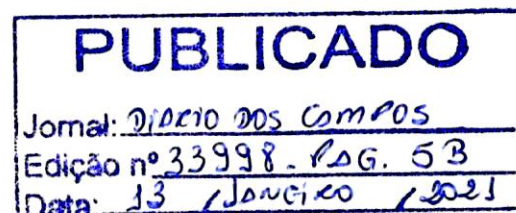 PUBLICADO
Jornal: DIÁRIO DOS CAMPOS
Edição nº 33998 - PAG. 5B
Data: 13 / JANEIRO / 2021